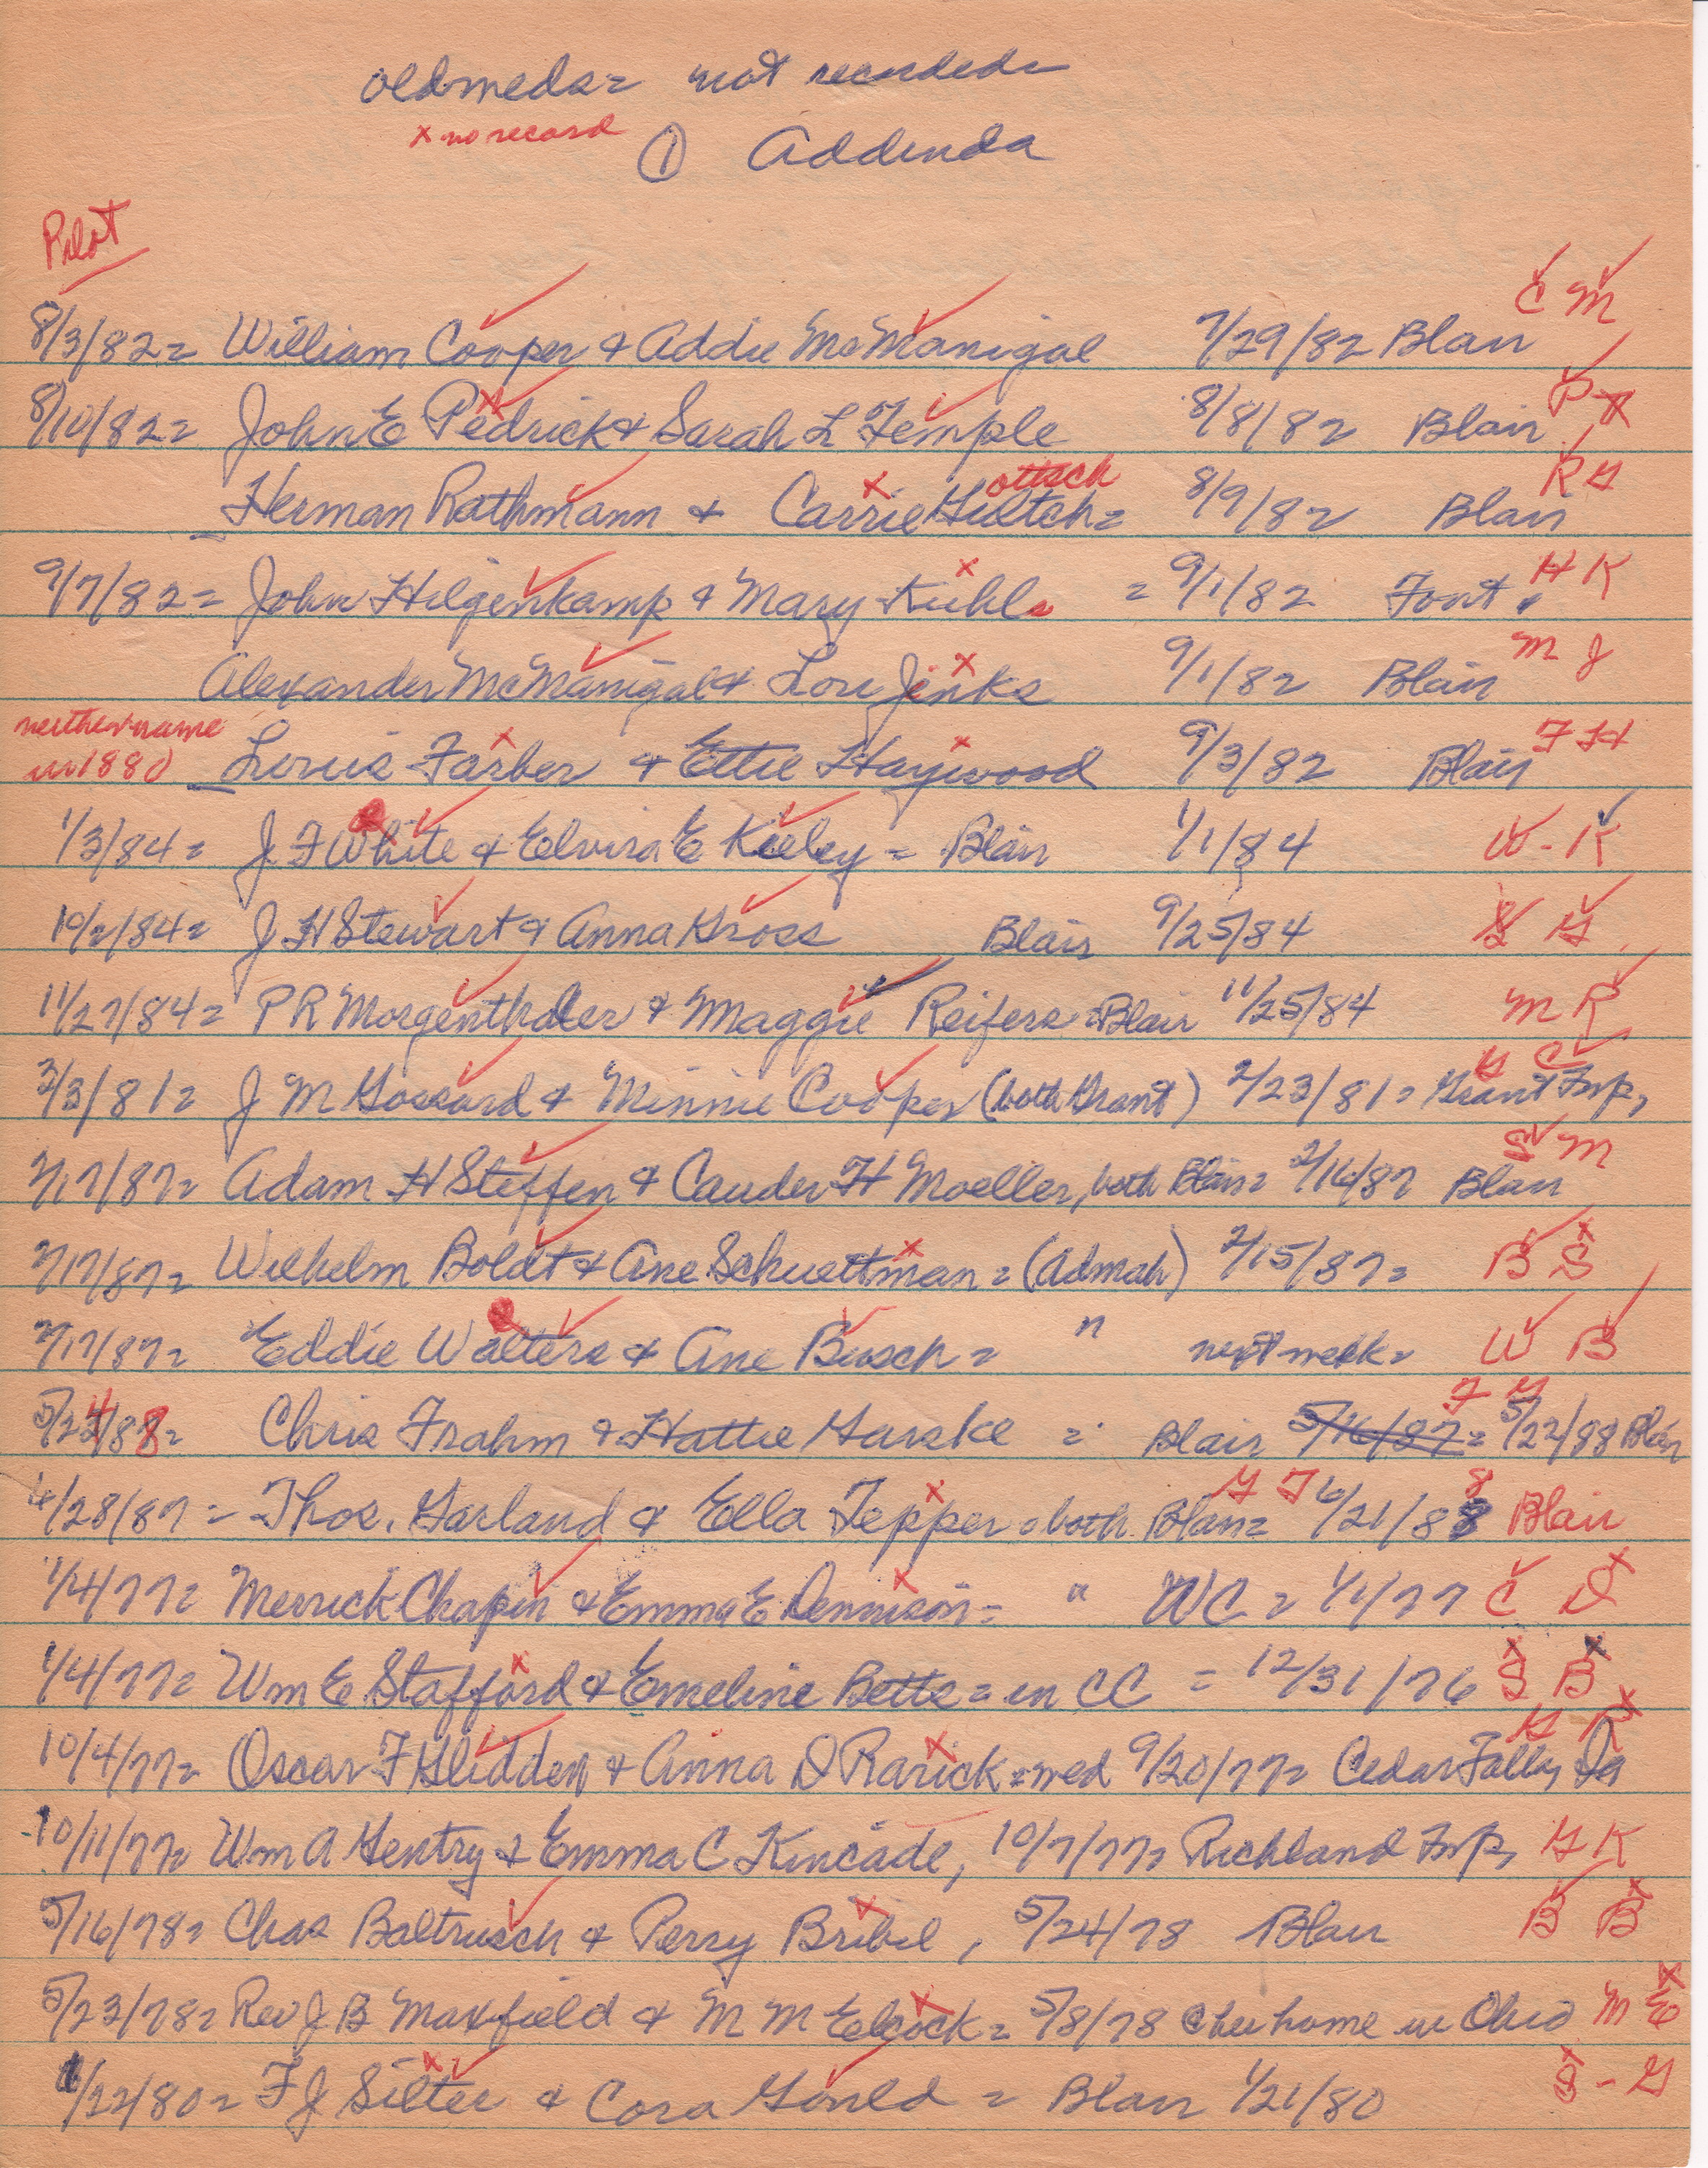 old meds = not recorded =
x no record
① Addenda
Pilot
C M
8/3/82 = William Cooper & Addie McManigal 7/29/82 Blair
P T
8/10/82 = John E Pedrick & Sarah L Temple 8/8/82 Blair
ottsch R G
Herman Rathmann & Carrie Gultch = 8/9/82 Blair
9/7/82 = John Hilgenkamp & Mary Kuhl = 9/1/82 Font. H K
Alexander McManigal & Lou Jenks 9/1/82 Blair M J
neither name
in 1880
Louis Farber & Ettie Haywood 9/3/82 Blair F H
1/3/84 = J F White & Elvira E Kieley = Blair 1/1/84 W - K
10/2/84 = J H Stewart & Anna Gross Blair 9/25/84 S G
11/27/84 = P R Morgenthaler & Maggie Reifers = Blair 11/25/84 M R
G C
3/3/81 = J M Gossard & Minnie Cooper (both Grant) 2/23/81 = Grant Twp,
S M
2/17/87 = Adam H Steffen & Cauder H Moeller, both Blair = 2/16/87 Blair
2/17/87 = Wilhelm Boldt & Ane Schuettman = (Admah) 2/15/87 = B S
2/17/87 = Eddie Walters & Ane Busch = " next week = W B
F G
5/24/88 = Chris Frahm & Hattie Garske = Blair 5/16/87 = 5/22/88 Blair
G T
4/28/87 = Thos. Garland & Ella Tepper = both Blair = 6/21/88 Blair
1/4/77 = Merrick Chapin & Emma E Dennison = " WC = 1/1/77 C D
1/4/77 = Wm E Stafford & Emeline Betts = in CC = 12/31/76 S B
G R
10/4/77 = Oscar F Glidden & Anna D Rarick = med 9/20/77 = Cedar Falls, Ia
10/11/77 = Wm A Gentry & Emma C Kincade, 10/7/77 = Richland Twp, G K
5/16/78 = Chas Baltrusch & Perry Bribil, 5/24/78 Blair B B
5/23/78 = Rev J B Maxfield & M M Elcock = 5/8/78 @ her home in Ohio M E
1/22/80 = F J Silter & Cora Gould = Blair 1/21/80 S - G